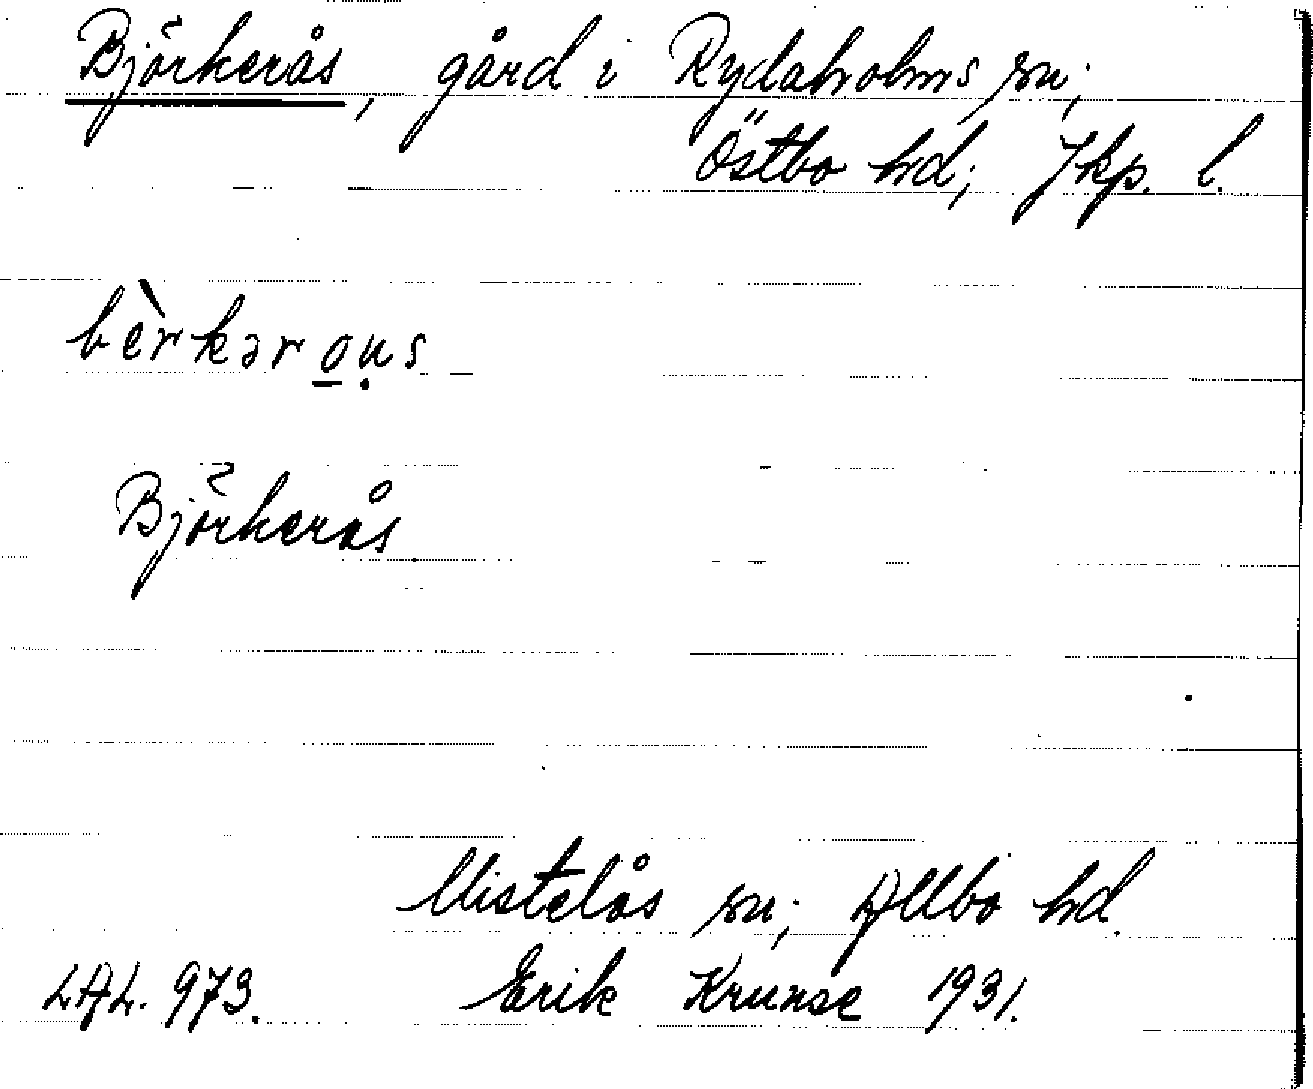 Björkerås, gård i Rydaholms sn;
Östbo hd; Jkp. l.
bèrkəro̲ụs
Björkerås
Mistelås sn; Allbo hd.
LAL. 973. Erik Krunse 1931.